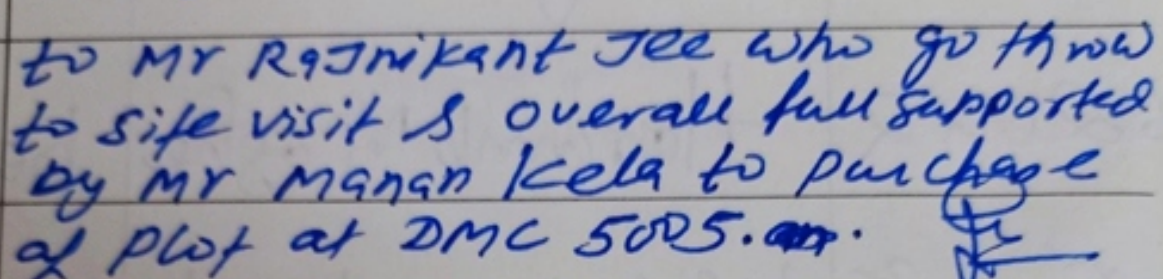 to Mr Rajnikant Jee who go throw
to site visit & overall full supported
by Mr Manan Kela to purchage
of Plot at DMC 5005.